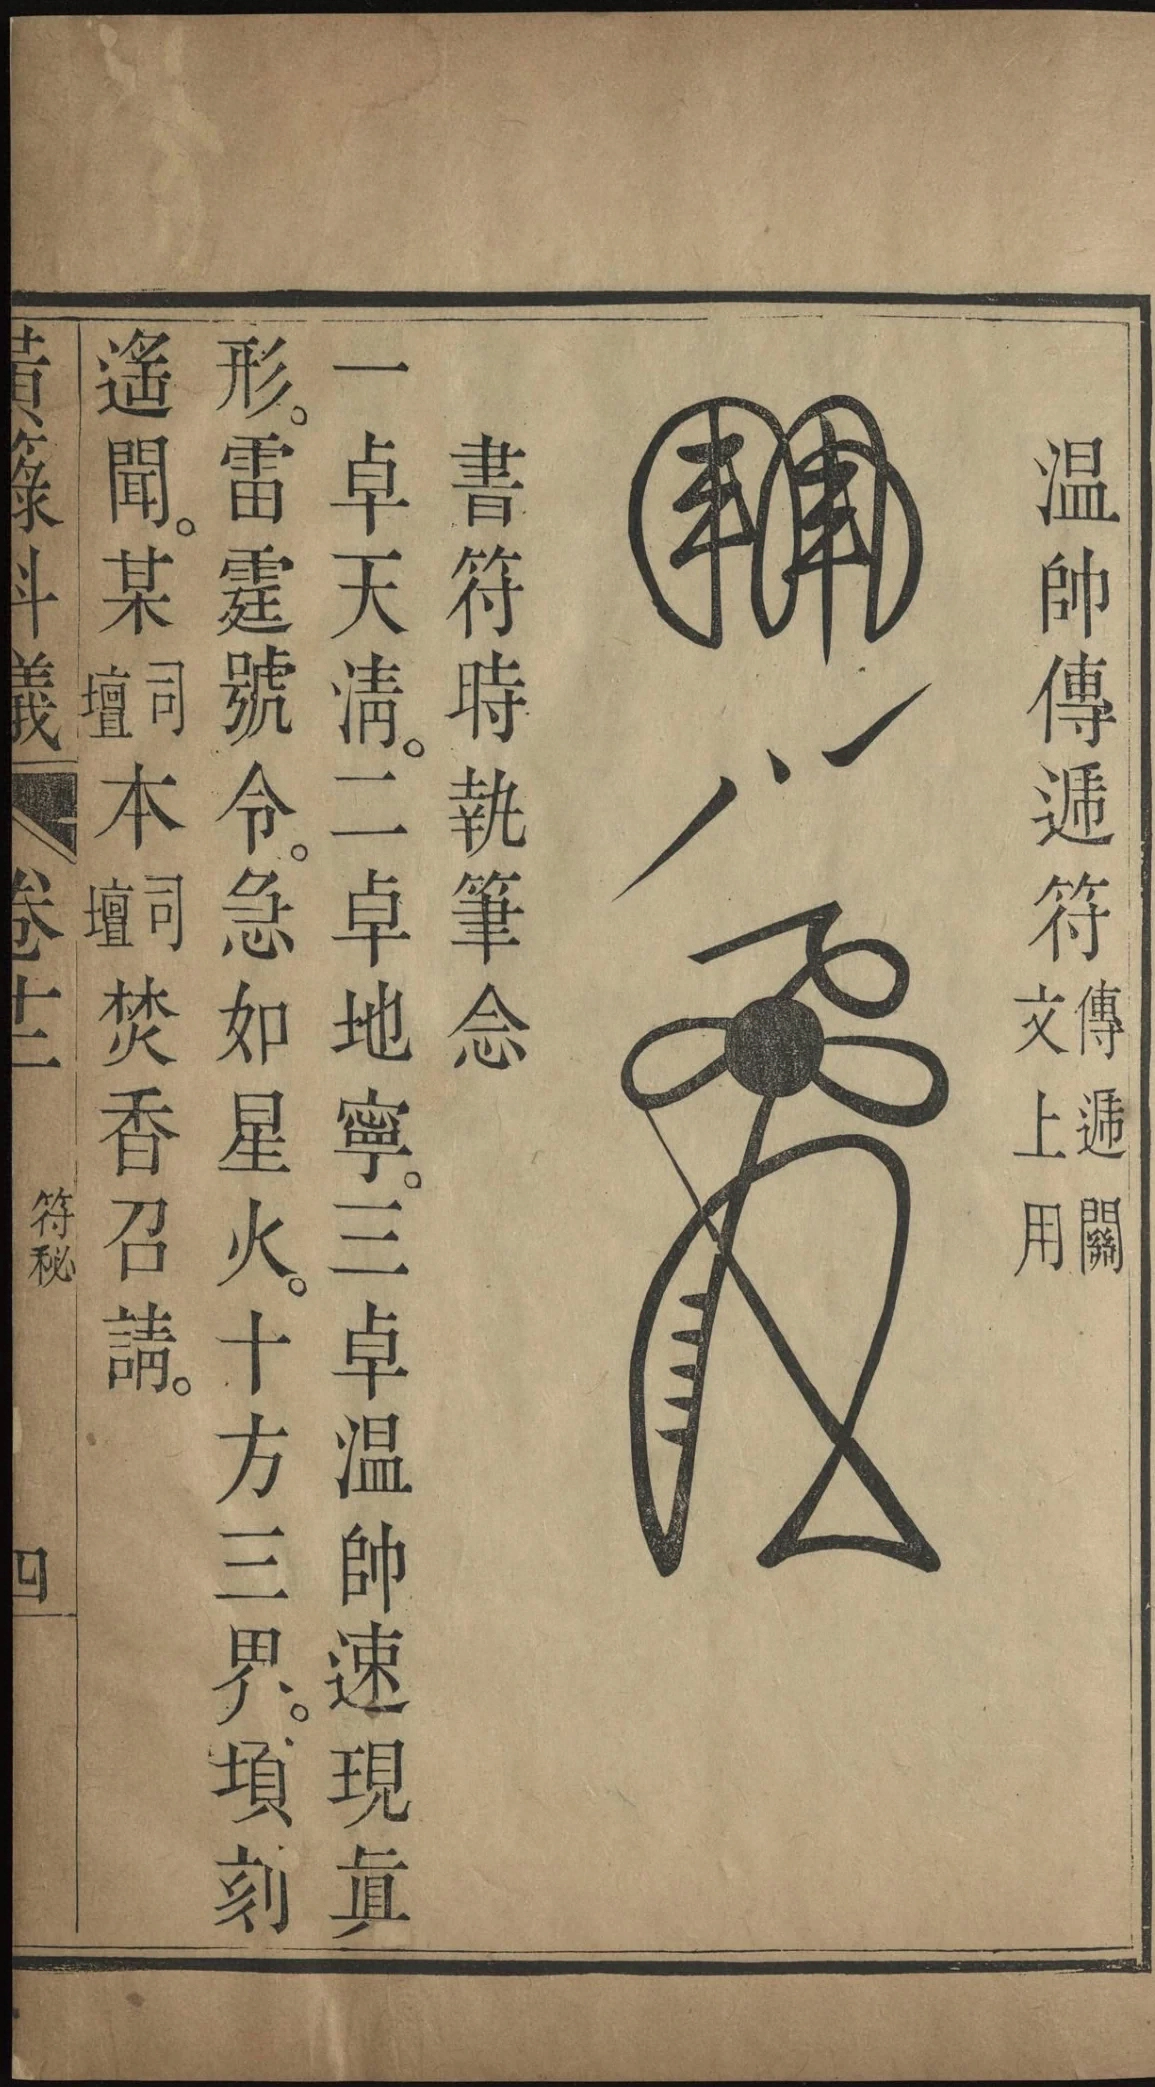 温帥傳遞符傳遞關文上用
書符時執筆念
一卓天淸。二卓地寧。三卓温帥速現眞
形。雷霆號令。急如星火。十方三界。頃刻
遙聞。某司壇本司壇焚香召請。
黃籙科儀 卷十二 符秘 四